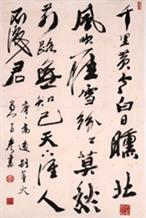 千里黄云白日曛北
風吹雁雪紛紛莫愁
前路無知己天下誰人
不識君
唐高適别董大